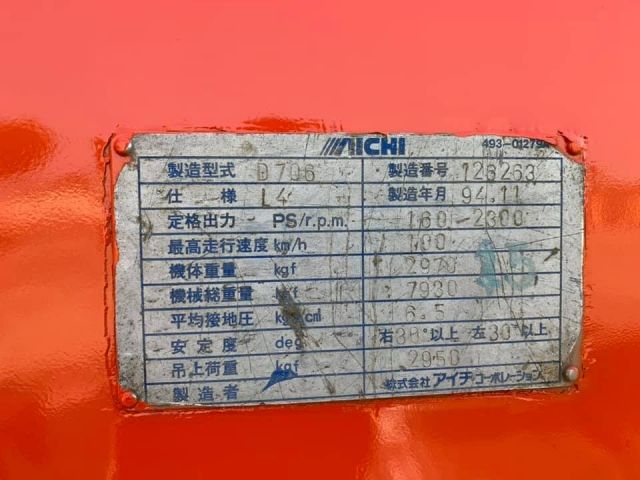 AICHI 493-01279
製造型式 D706 製造番号 126263
仕 様 L4 製造年月 94.11
定格出力 PS/r.p.m. 160-2300
最高走行速度 km/h 100
機体重量 kgf 2970
機械総重量 kgf 7930
平均接地圧 6.5
安定度 deg 右30°以上 左30°以上
吊上荷重 kgf 2950
製造者 株式会社アイチ・コーポレーション